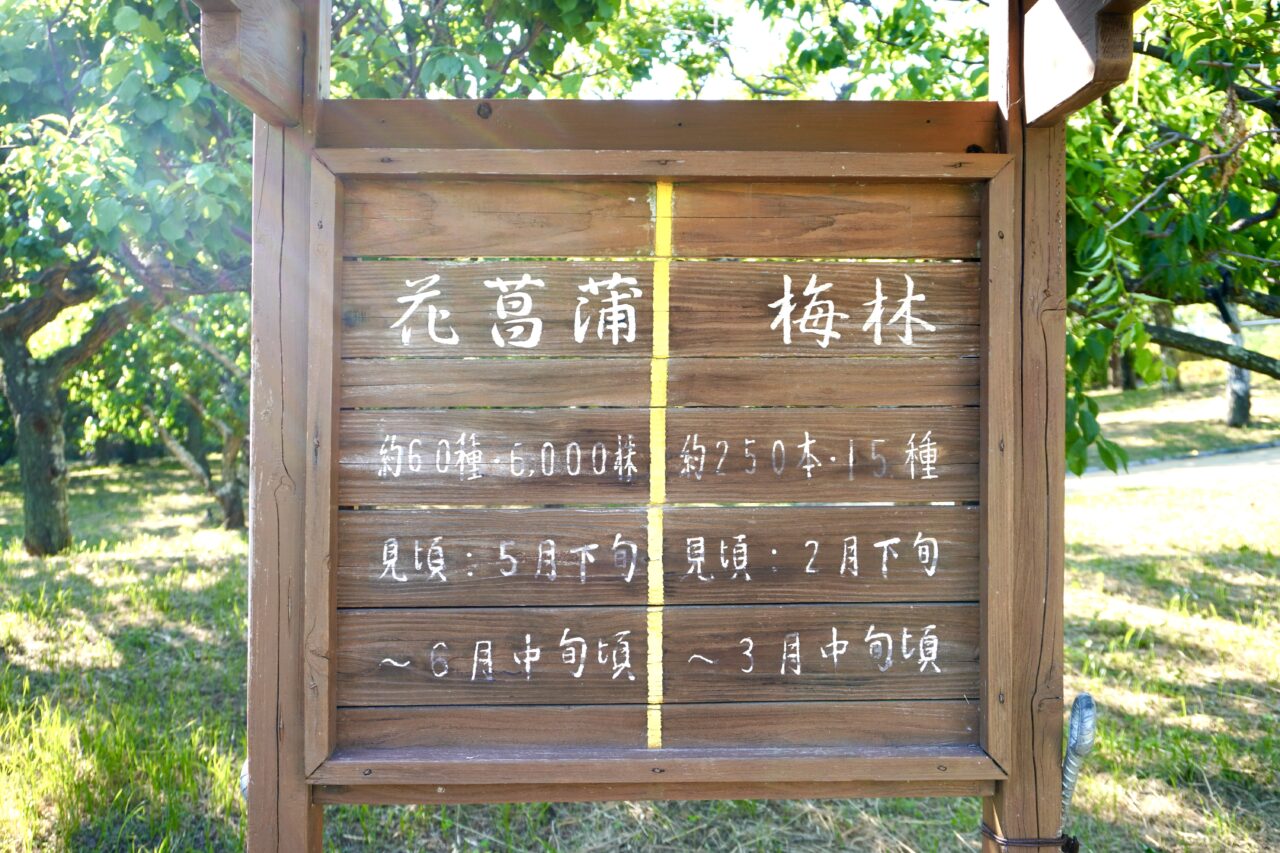 花菖蒲
約60種・6,000株
見頃：5月下旬
～6月中旬頃
梅林
約250本・15種
見頃：2月下旬
～3月中旬頃